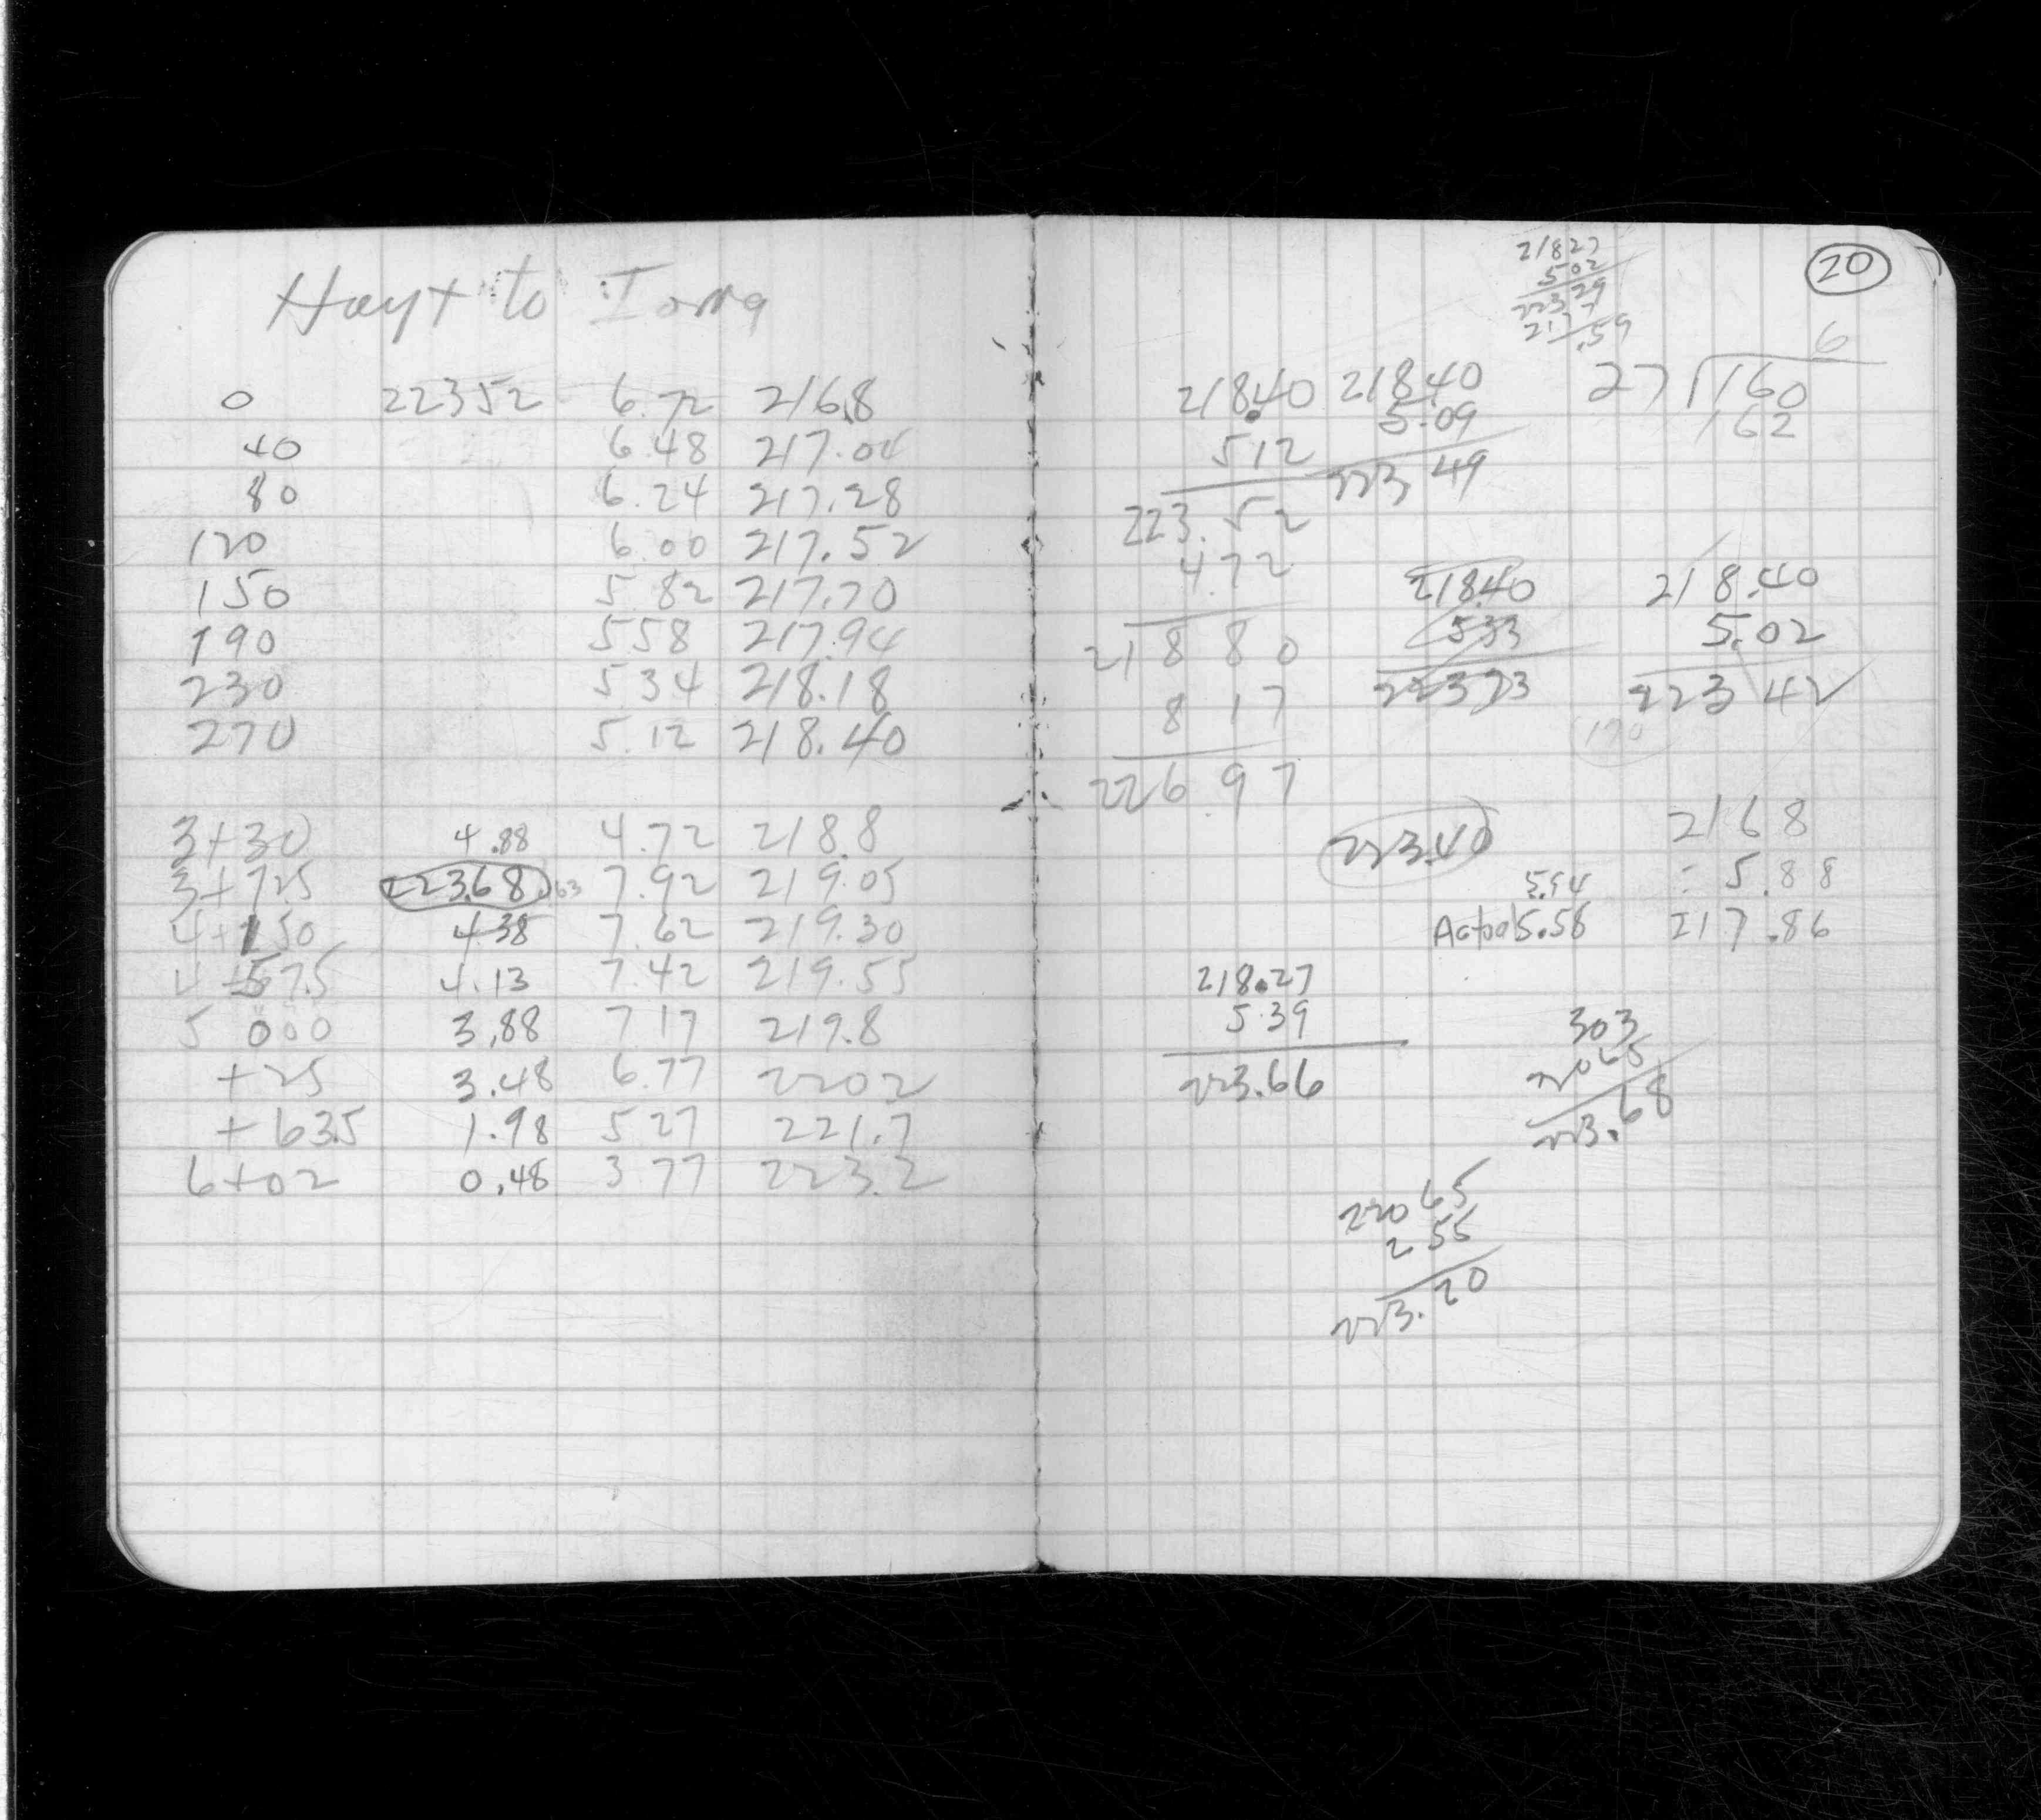 Hoyt to Iowa
0 22352 6.72 216.8
40 6.48 217.04
80 6.24 217.28
120 6.00 217.52
150 5.82 217.70
190 558 217.94
230 534 218.18
270 5.12 218.40
3+30 4.88 4.72 218.8
3+72.5 223.68 .63 7.92 219.05
4+150 4.38 7.62 219.30
4+57.5 4.13 7.42 219.55
5 000 3.88 7 17 219.8
+25 3.48 6.77 2202
+63.5 1.98 5 27 221.7
6+02 0.48 3 77 223.2
20
21827
502
223 29
217 7
.59
6
27 160
162
218.40
512
223.52
4.72
218 80
8 17
226.97
218.40
5.09
223 49
218.40
533
223 73
218.40
5.02
223 42
170
223.40
2168
5.88
217.86
5.54
Actual 5.58
218.27
5.39
223.66
303
22065
223.68
220 65
2 55
223.20